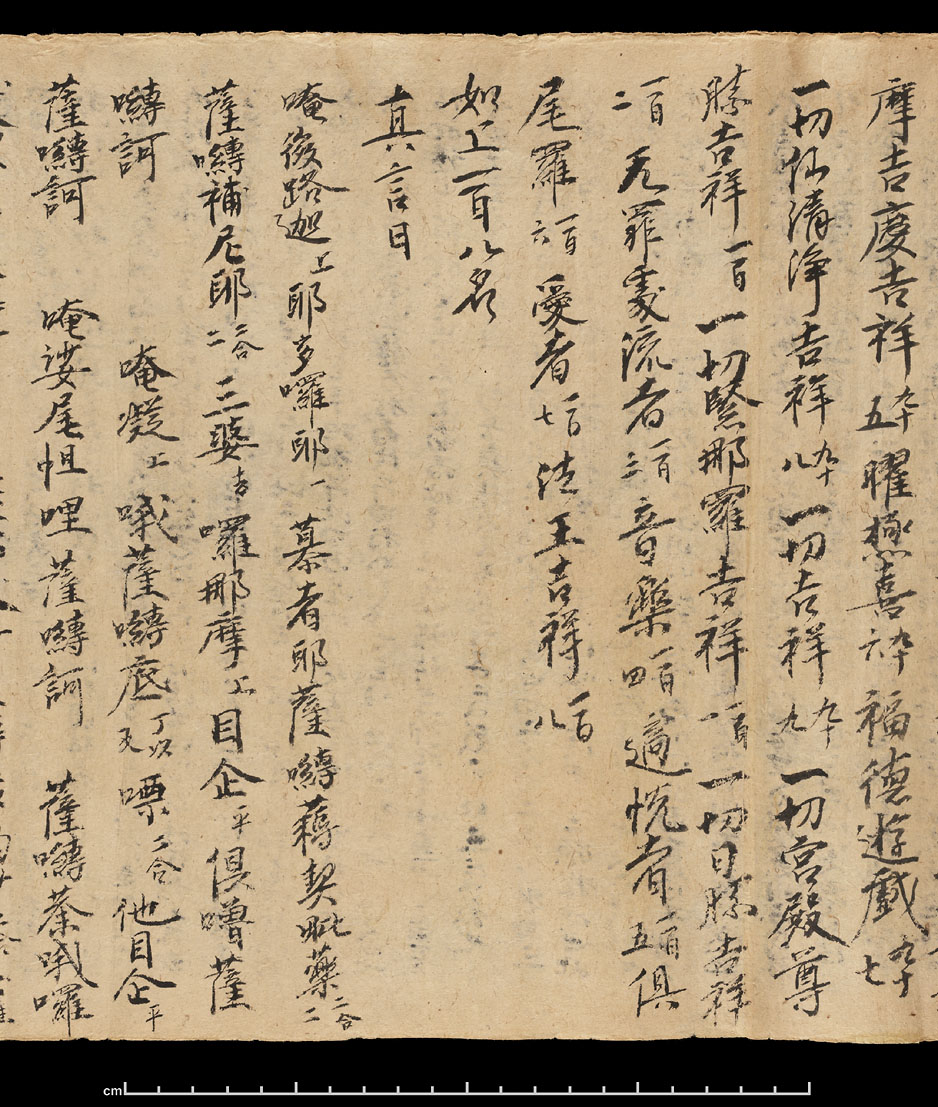 摩吉慶吉祥九十五曜極喜九十六福德遊戲九十七
一切仙清淨吉祥九十八一切吉祥九十九一切宮殿尊
勝吉祥一百一切緊那羅吉祥一百一一切日勝吉祥
一百二无罪處流者一百三音樂一百四適悅者一百五俱
尾羅一百六愛者一百七法王吉祥一百八
如上一百八名
真言曰
唵後路迦上耶多囉耶一慕者耶薩嚩耨契毗藥二合二
薩嚩補尼耶二合三三婆去囉那摩上目企平俱嚕薩
嚩訶 唵凝上哦薩嚩底丁以反嘌二合他目企平
薩嚩訶 唵娑尾怛哩薩嚩訶 薩嚩蓁哦囉
cm